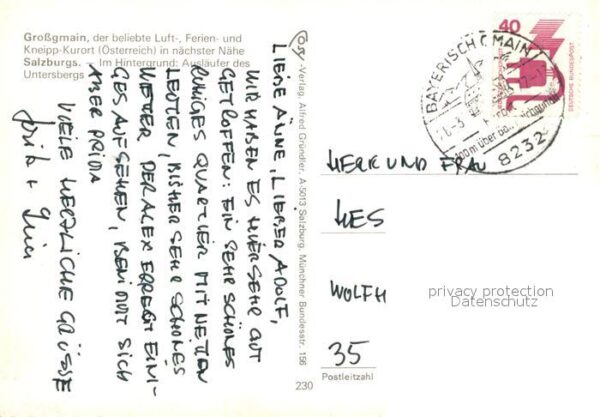 Großgmain, der beliebte Luft-, Ferien- und
Kneipp-Kurort (Österreich) in nächster Nähe
Salzburgs. — Im Hintergrund: Ausläufer des
Untersbergs
LIEBE ÄNNE, LIEBER ADOLF,
WIR HABEN ES HIER SEHR GUT
GETROFFEN: EIN SEHR SCHÖNES
RUHIGES QUARTIER MIT NETTEN
LEUTEN, BISHER SEHR SCHÖNES
WETTER. DER ALEX ERREGT EINI-
GES AUFSEHEN, BENIMMT SICH
ABER PRIMA
VIELE HERZLICHE GRÜSSE
-Verlag, Alfred Gründler, A-5013 Salzburg, Münchner Bundesstr. 156
230
40
DEUTSCHE BUNDESPOST
BAYERISCH GMAIN
8232
HERR UND FRAU
HES
WOLFH
35
Postleitzahl
privacy protection
Datenschutz